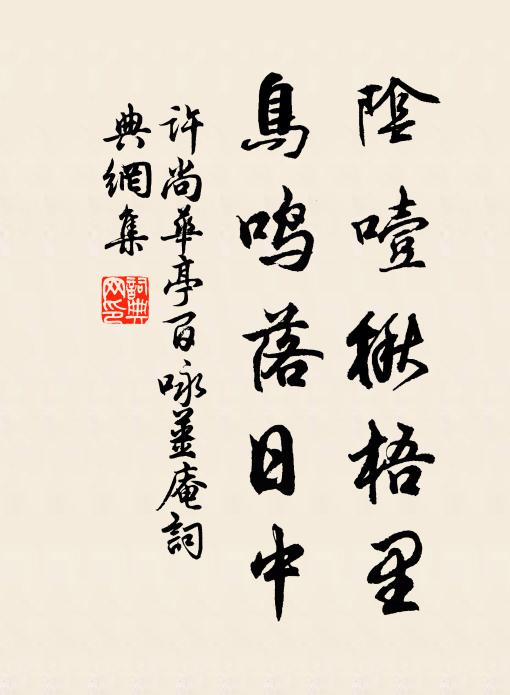 陰噎楸梧里
鳥鳴落日中
許尚華亭百咏薑庵詞
典網集
詞典
网印